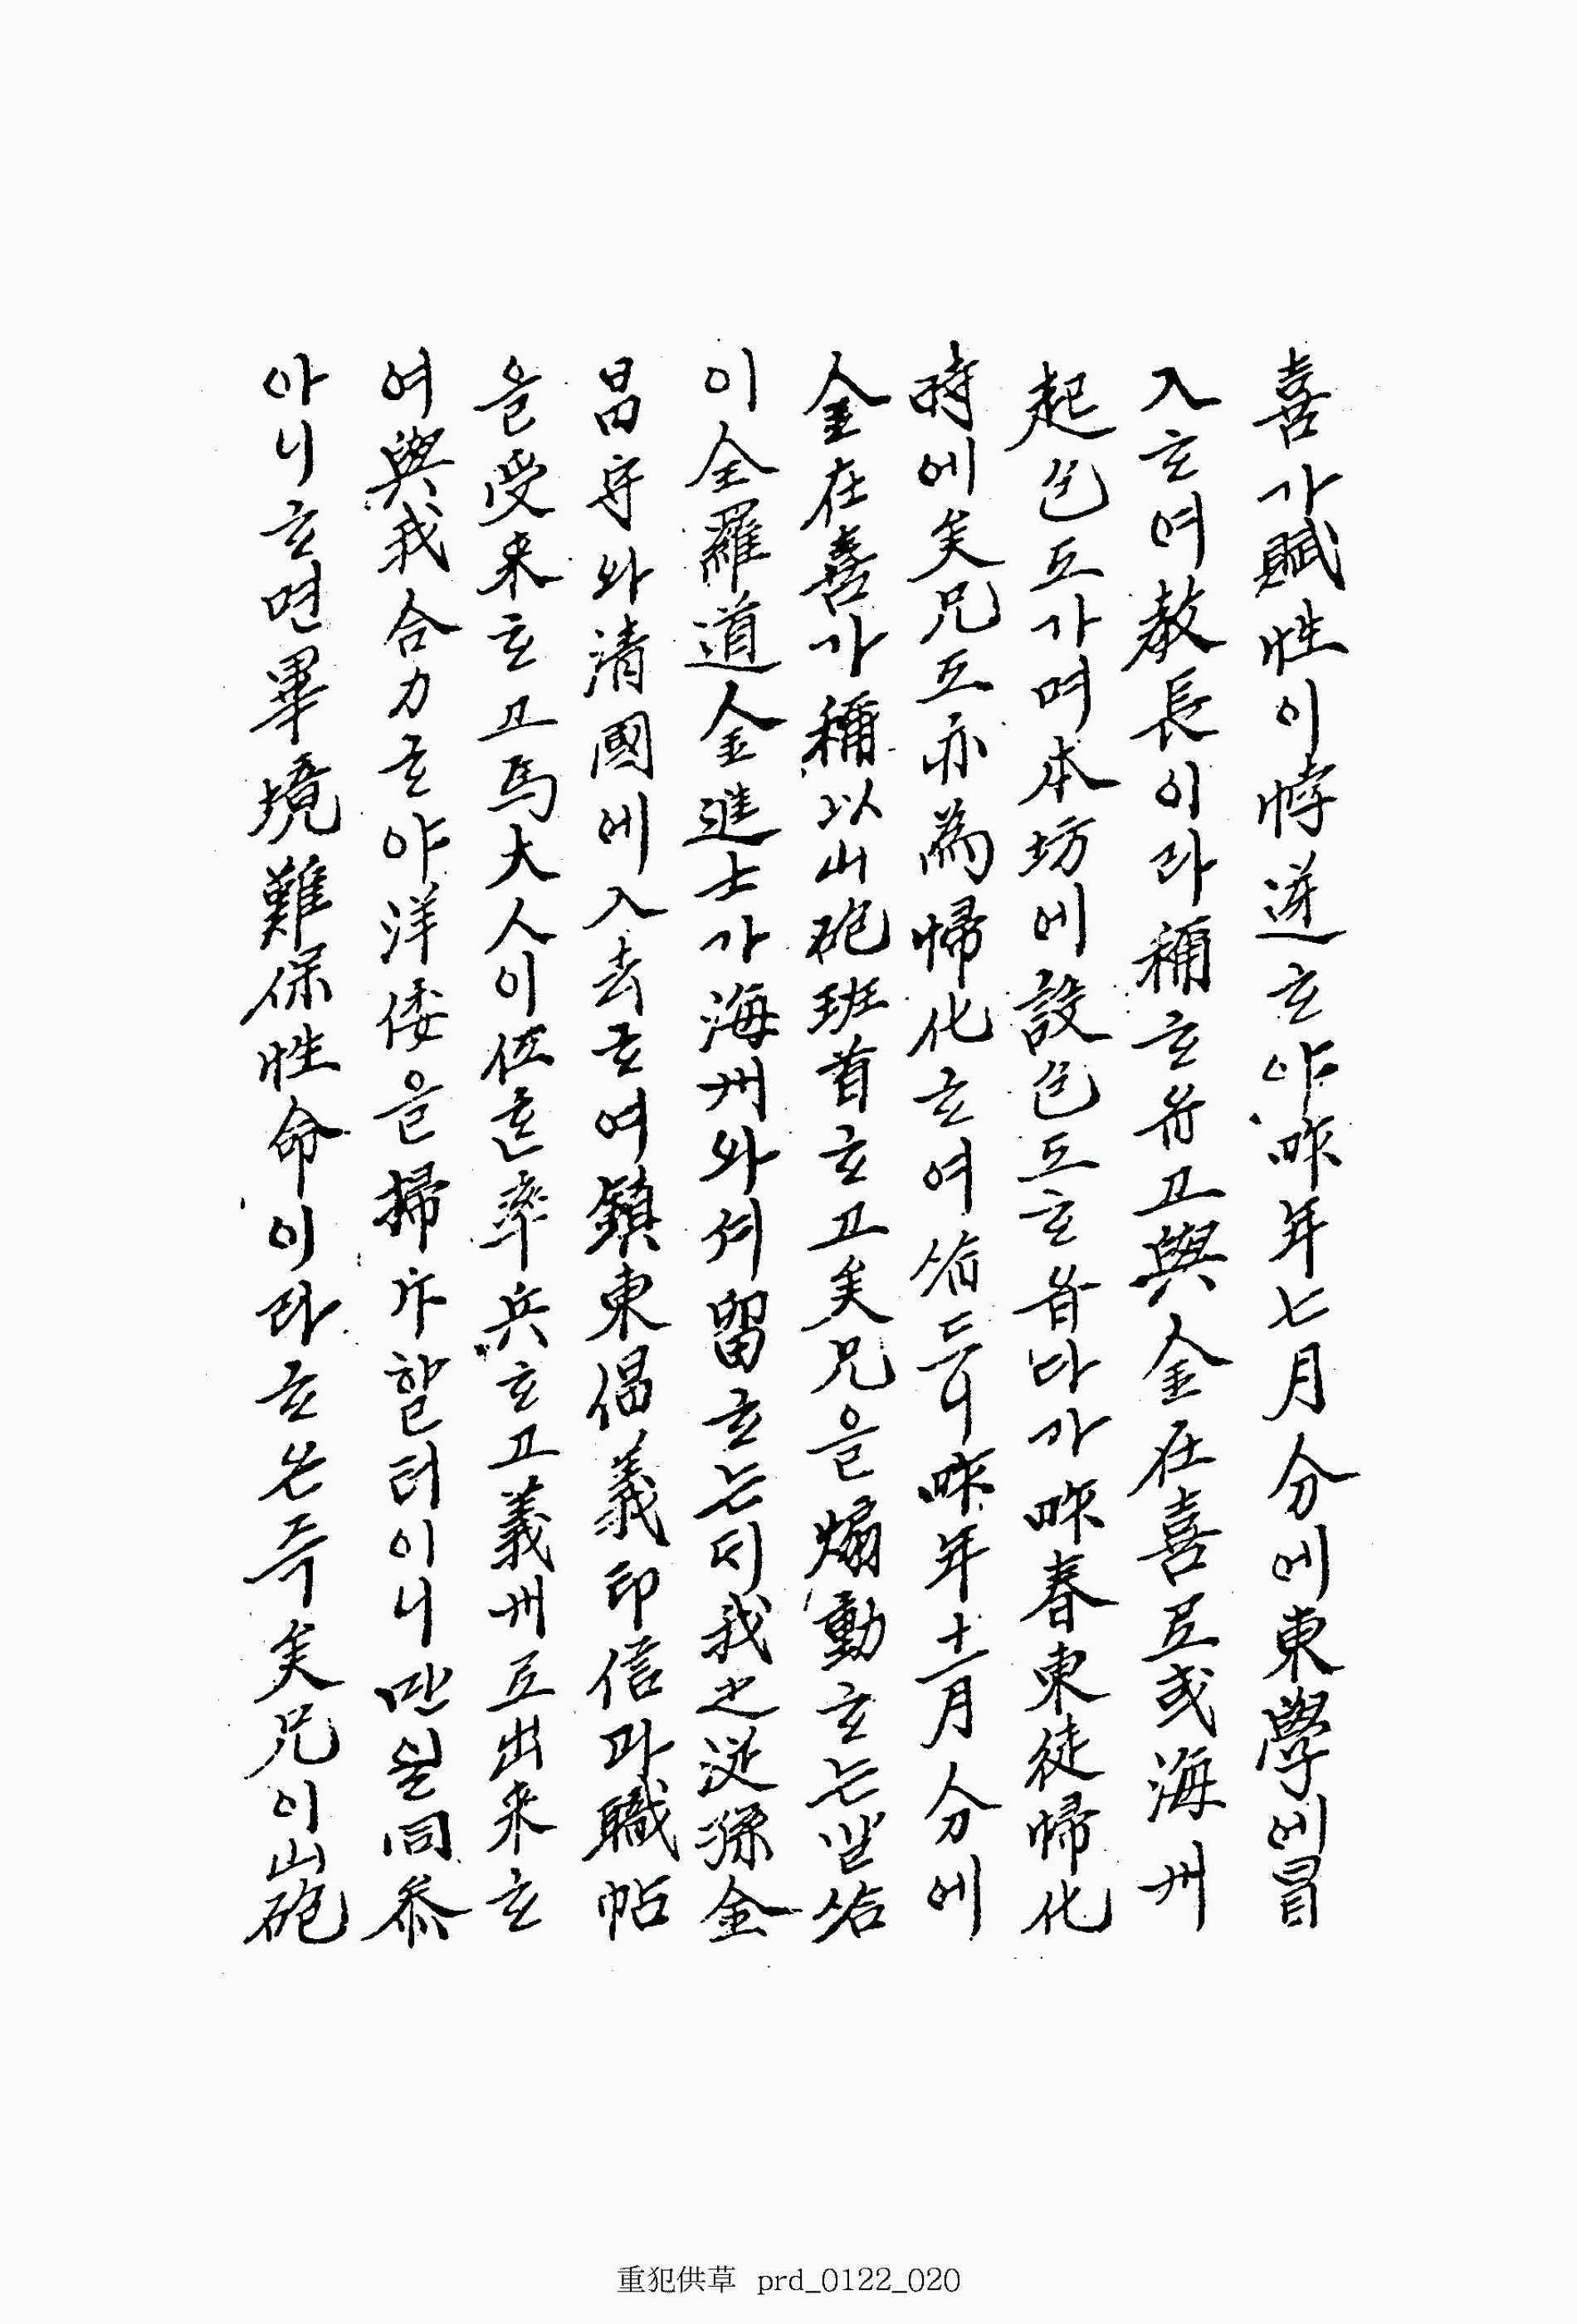 喜가賦性이悖逆ᄒᆞ야昨年七月分에東學에冒
入ᄒᆞ며敎長이라稱ᄒᆞ옵고與金在喜로或海州
起包도가며本坊에設包도ᄒᆞ옵다가昨春東徒歸化
時에矣兄도亦爲歸化ᄒᆞ여ᄉᆞᆸ드니昨年十一月分에
金在喜가稱以山砲班首ᄒᆞ고矣兄을煽動ᄒᆞ는말ᄉᆞᆷ
이全羅道金進士가海州와셔留ᄒᆞ는디我之從孫金
昌守와淸國에入去ᄒᆞ여鎭東倡義印信과職帖
을受来ᄒᆞ고馬大人이伍萬率兵ᄒᆞ고義州로出来ᄒᆞ
여與我合力ᄒᆞ야洋倭을掃斥할터이니만일同叅
아니ᄒᆞ면畢境難保性命이라ᄒᆞ온즉矣兄이山砲
重犯供草 prd_0122_020